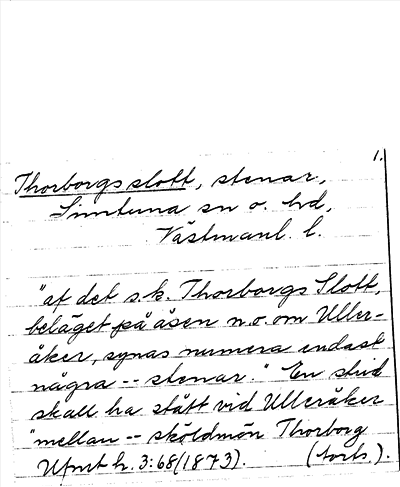 1.
Thorborgs slott, stenar,
Simtuna sn o. hd,
Västmanl. l.
"af det s.k. Thorborgs Slott,
beläget på åsen n.o. om Uller-
åker, synas numera endast
några -- stenar." En strid
skall ha stått vid Ulleråker
"mellan -- sköldmön Thorborg
Ufmt h. 3:68 (1873). (forts.).